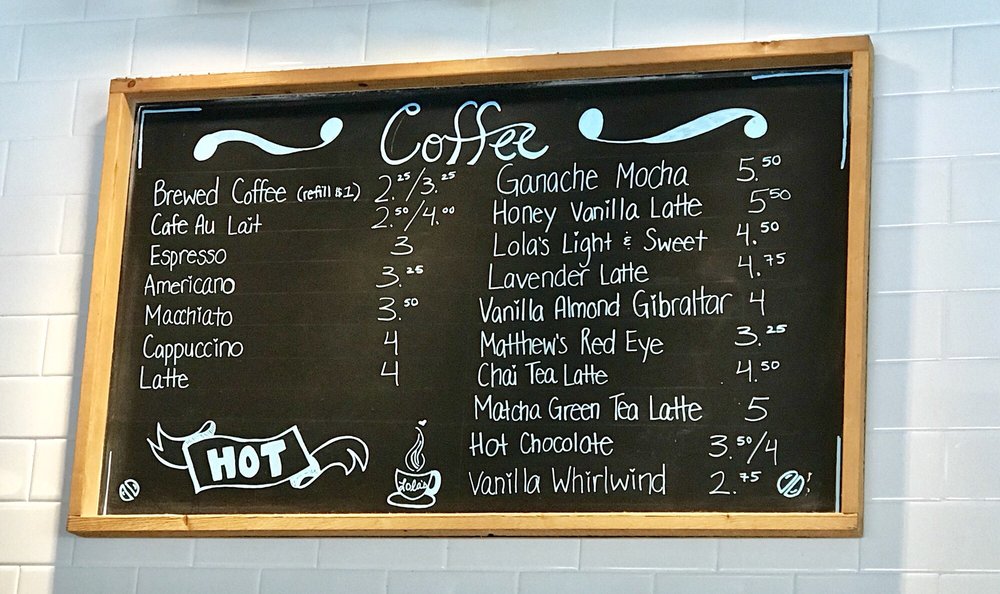 Coffee
Brewed Coffee (refill $1) 2.25/3.25
Cafe Au Lait 2.50/4.00
Espresso 3
Americano 3.25
Macchiato 3.50
Cappuccino 4
Latte 4
HOT
Lola's
Ganache Mocha 5.50
Honey Vanilla Latte 5.50
Lola's Light & Sweet 4.50
Lavender Latte 4.75
Vanilla Almond Gibraltar 4
Matthew's Red Eye 3.25
Chai Tea Latte 4.50
Matcha Green Tea Latte 5
Hot Chocolate 3.50/4
Vanilla Whirlwind 2.75